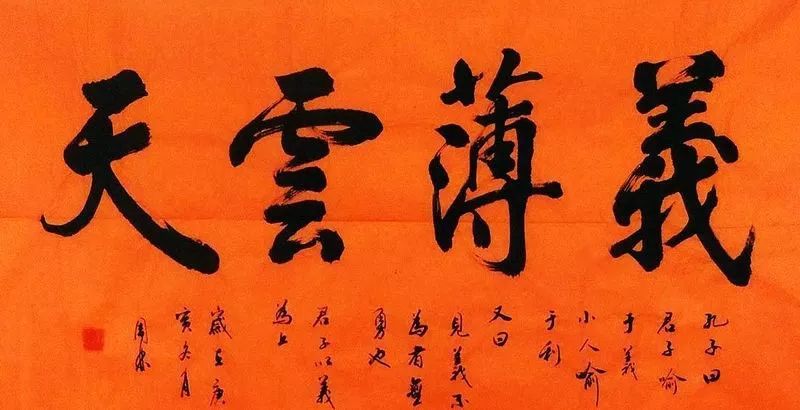 義薄雲天
孔子曰
君子喻
于義
小人喻
于利
又曰
見義不
為者無
勇也
君子以義
為上
歲在庚
寅冬月